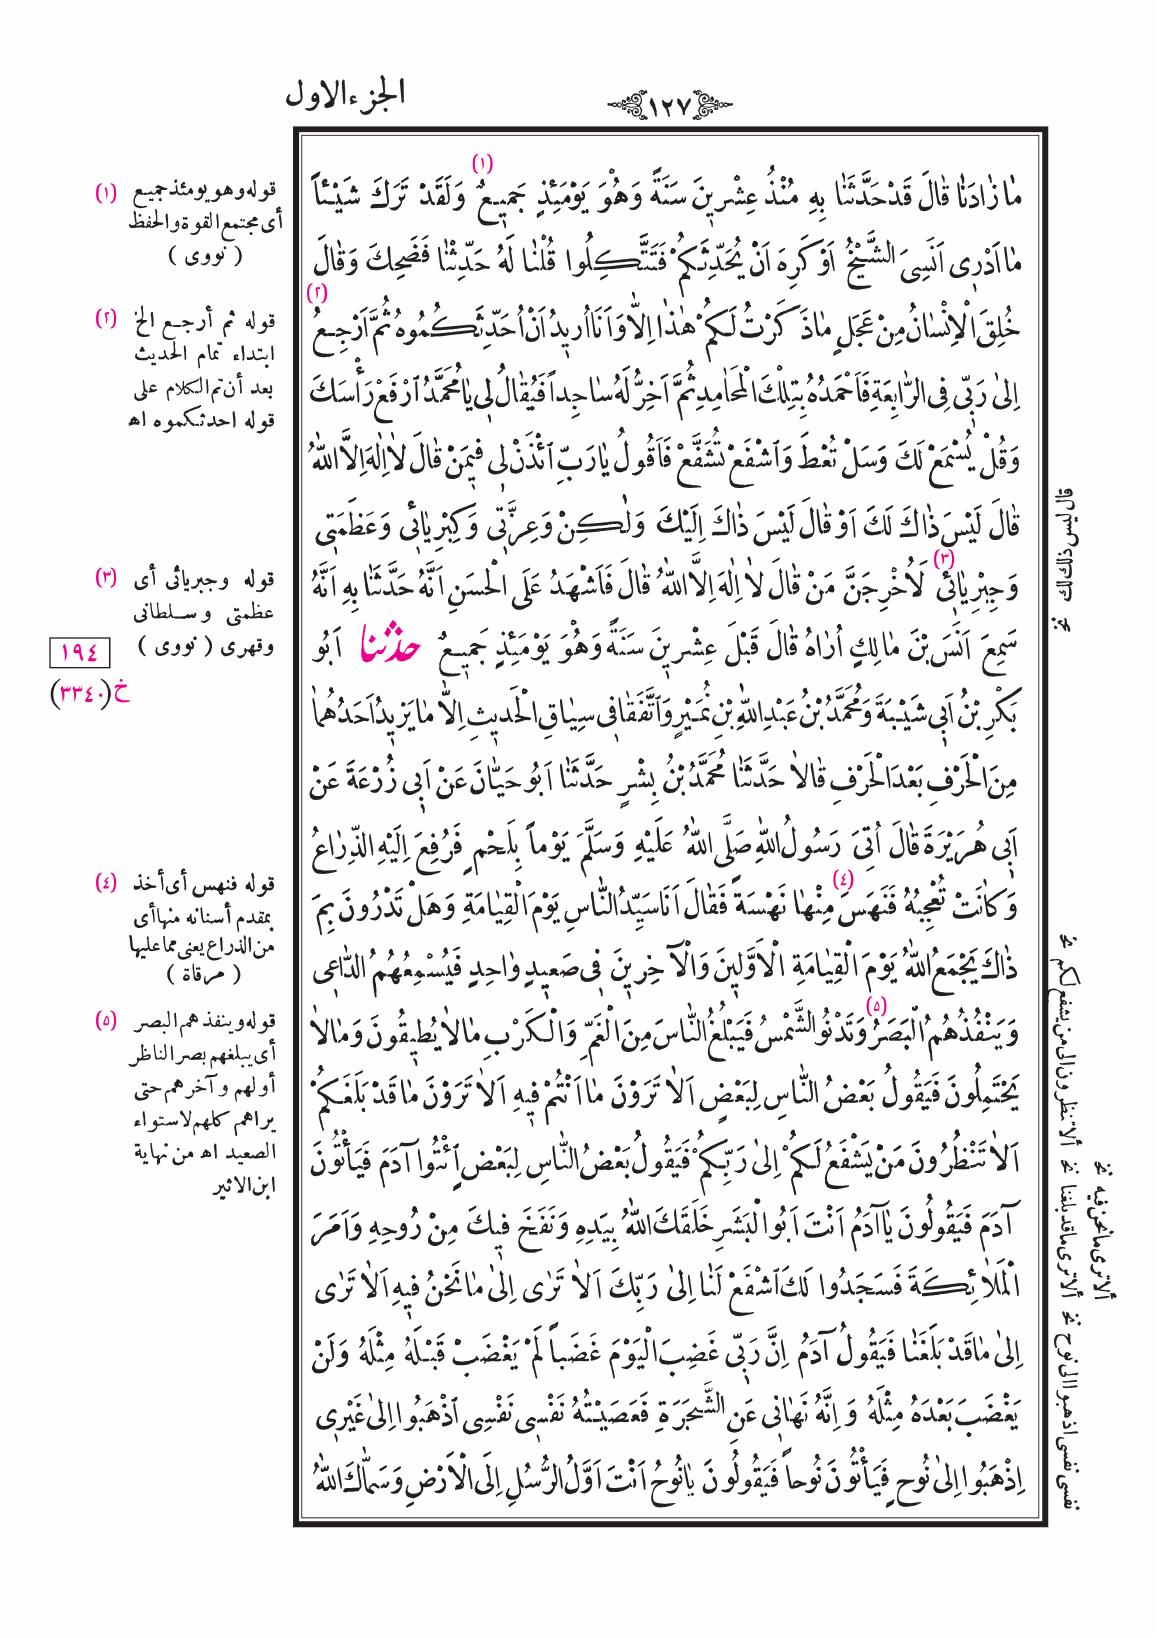 ١٢٧
الجزء الاول
مٰا زٰادَنٰا قٰالَ قَدْ حَدَّثَنٰا بِهِ مُنْذُ عِشْرينَ سَنَةً وَهُوَ يَوْمَئِذٍ جَميعٌ (١) وَلَقَدْ تَرَكَ شَيْئاً
مٰا اَدْرى اَنَسِىَ الشَّيْخُ اَوْ كَرِهَ اَنْ يُحَدِّثَكُمْ فَتَتَّكِلُوا قُلْنٰا لَهُ حَدِّثْنٰا فَضَحِكَ وَقٰالَ
خُلِقَ الْاِنْسٰانُ مِنْ عَجَلٍ مٰا ذَكَرْتُ لَكُمْ هٰذٰا اِلاّٰ وَاَنَا اُريدُ اَنْ اُحَدِّثَكُمُوهُ ثُمَّ اَرْجِعُ (٢)
اِلىٰ رَبّى فِى الرّٰابِعَةِ فَاَحْمَدُهُ بِتِلْكَ الْمَحٰامِدِ ثُمَّ اَخِرُّ لَهُ سٰاجِداً فَيُقٰالُ لى يٰا مُحَمَّدُ ارْفَعْ رَأْسَكَ
وَقُلْ يُسْمَعْ لَكَ وَسَلْ تُعْطَ وَاشْفَعْ تُشَفَّعْ فَاَقُولُ يٰا رَبِّ ائْذَنْ لى فيمَنْ قٰالَ لاٰ اِلٰهَ اِلاَّ اللّٰهُ
قٰالَ لَيْسَ ذٰاكَ لَكَ اَوْ قٰالَ لَيْسَ ذٰاكَ اِلَيْكَ وَلٰكِنْ وَعِزَّتى وَكِبْرِيٰائى وَعَظَمَتى
وَجِبْرِيٰائى (٣) لَاُخْرِجَنَّ مَنْ قٰالَ لاٰ اِلٰهَ اِلاَّ اللّٰهُ قٰالَ فَاَشْهَدُ عَلَى الْحَسَنِ اَنَّهُ حَدَّثَنٰا بِهِ اَنَّهُ
سَمِعَ اَنَسَ بْنَ مٰالِكٍ اُرٰاهُ قٰالَ قَبْلَ عِشْرينَ سَنَةً وَهُوَ يَوْمَئِذٍ جَميعٌ حدثنا اَبُو
بَكْرِ بْنُ اَبى شَيْبَةَ وَمُحَمَّدُ بْنُ عَبْدِ اللّٰهِ بْنِ نُمَيْرٍ وَاتَّفَقٰا فى سِيٰاقِ الْحَديثِ اِلاّٰ مٰا يَزيدُ اَحَدُهُمٰا
مِنَ الْحَرْفِ بَعْدَ الْحَرْفِ قٰالاٰ حَدَّثَنٰا مُحَمَّدُ بْنُ بِشْرٍ حَدَّثَنٰا اَبُو حَيّٰانَ عَنْ اَبى زُرْعَةَ عَنْ
اَبى هُرَيْرَةَ قٰالَ اُتِىَ رَسُولُ اللّٰهِ صَلَّى اللّٰهُ عَلَيْهِ وَسَلَّمَ يَوْماً بِلَحْمٍ فَرُفِعَ اِلَيْهِ الذِّرٰاعُ
وَكٰانَتْ تُعْجِبُهُ فَنَهَسَ (٤) مِنْهٰا نَهْسَةً فَقٰالَ اَنَا سَيِّدُ النّٰاسِ يَوْمَ الْقِيٰامَةِ وَهَلْ تَدْرُونَ بِمَ
ذٰاكَ يَجْمَعُ اللّٰهُ يَوْمَ الْقِيٰامَةِ الْاَوَّلينَ وَالْآخِرينَ فى صَعيدٍ وٰاحِدٍ فَيُسْمِعُهُمُ الدّٰاعى
وَيَنْفُذُهُمُ الْبَصَرُ (٥) وَتَدْنُو الشَّمْسُ فَيَبْلُغُ النّٰاسَ مِنَ الْغَمِّ وَالْكَرْبِ مٰا لاٰ يُطيقُونَ وَمٰا لاٰ
يَحْتَمِلُونَ فَيَقُولُ بَعْضُ النّٰاسِ لِبَعْضٍ اَلاٰ تَرَوْنَ مٰا اَنْتُمْ فيهِ اَلاٰ تَرَوْنَ مٰا قَدْ بَلَغَكُمْ
اَلاٰ تَنْظُرُونَ مَنْ يَشْفَعُ لَكُمْ اِلىٰ رَبِّكُمْ فَيَقُولُ بَعْضُ النّٰاسِ لِبَعْضٍ ائْتُوا آدَمَ فَيَأْتُونَ
آدَمَ فَيَقُولُونَ يٰا آدَمُ اَنْتَ اَبُو الْبَشَرِ خَلَقَكَ اللّٰهُ بِيَدِهِ وَنَفَخَ فيكَ مِنْ رُوحِهِ وَاَمَرَ
الْمَلاٰئِكَةَ فَسَجَدُوا لَكَ اشْفَعْ لَنٰا اِلىٰ رَبِّكَ اَلاٰ تَرٰى اِلىٰ مٰا نَحْنُ فيهِ اَلاٰ تَرٰى
اِلىٰ مٰا قَدْ بَلَغَنٰا فَيَقُولُ آدَمُ اِنَّ رَبّى غَضِبَ الْيَوْمَ غَضَباً لَمْ يَغْضَبْ قَبْلَهُ مِثْلَهُ وَلَنْ
يَغْضَبَ بَعْدَهُ مِثْلَهُ وَاِنَّهُ نَهٰانى عَنِ الشَّجَرَةِ فَعَصَيْتُهُ نَفْسى نَفْسى اذْهَبُوا اِلىٰ غَيْرى
اِذْهَبُوا اِلىٰ نُوحٍ فَيَأْتُونَ نُوحاً فَيَقُولُونَ يٰا نُوحُ اَنْتَ اَوَّلُ الرُّسُلِ اِلَى الْاَرْضِ وَسَمّٰاكَ اللّٰهُ
(١) قوله وهو يومئذ جميع
أى مجتمع القوة والحفظ
( نووى )
(٢) قوله ثم أرجع الخ
ابتداء تمام الحديث
بعد أن تم الكلام على
قوله احدثكموه اه
(٣) قوله وجبريائى أى
عظمتى وسلطانى
وقهرى ( نووى )
١٩٤
خ(٣٣٤٠)
(٤) قوله فنهس أى أخذ
بمقدم أسنانه منها أى
من الذراع يعنى مما عليها
( مرقاة )
(٥) قوله وينفذهم البصر
أى يبلغهم بصر الناظر
أولهم وآخرهم حتى
يراهم كلهم لاستواء
الصعيد اه من نهاية
ابن الاثير
قال ليس ذلك لك نخ
ألا تنظرون الى من يشفع لكم نخ
ألا ترى ما قد بلغنا نخ
ألا ترى ما نحن فيه نخ
نفسى نفسى اذهبوا الى نوح نخ